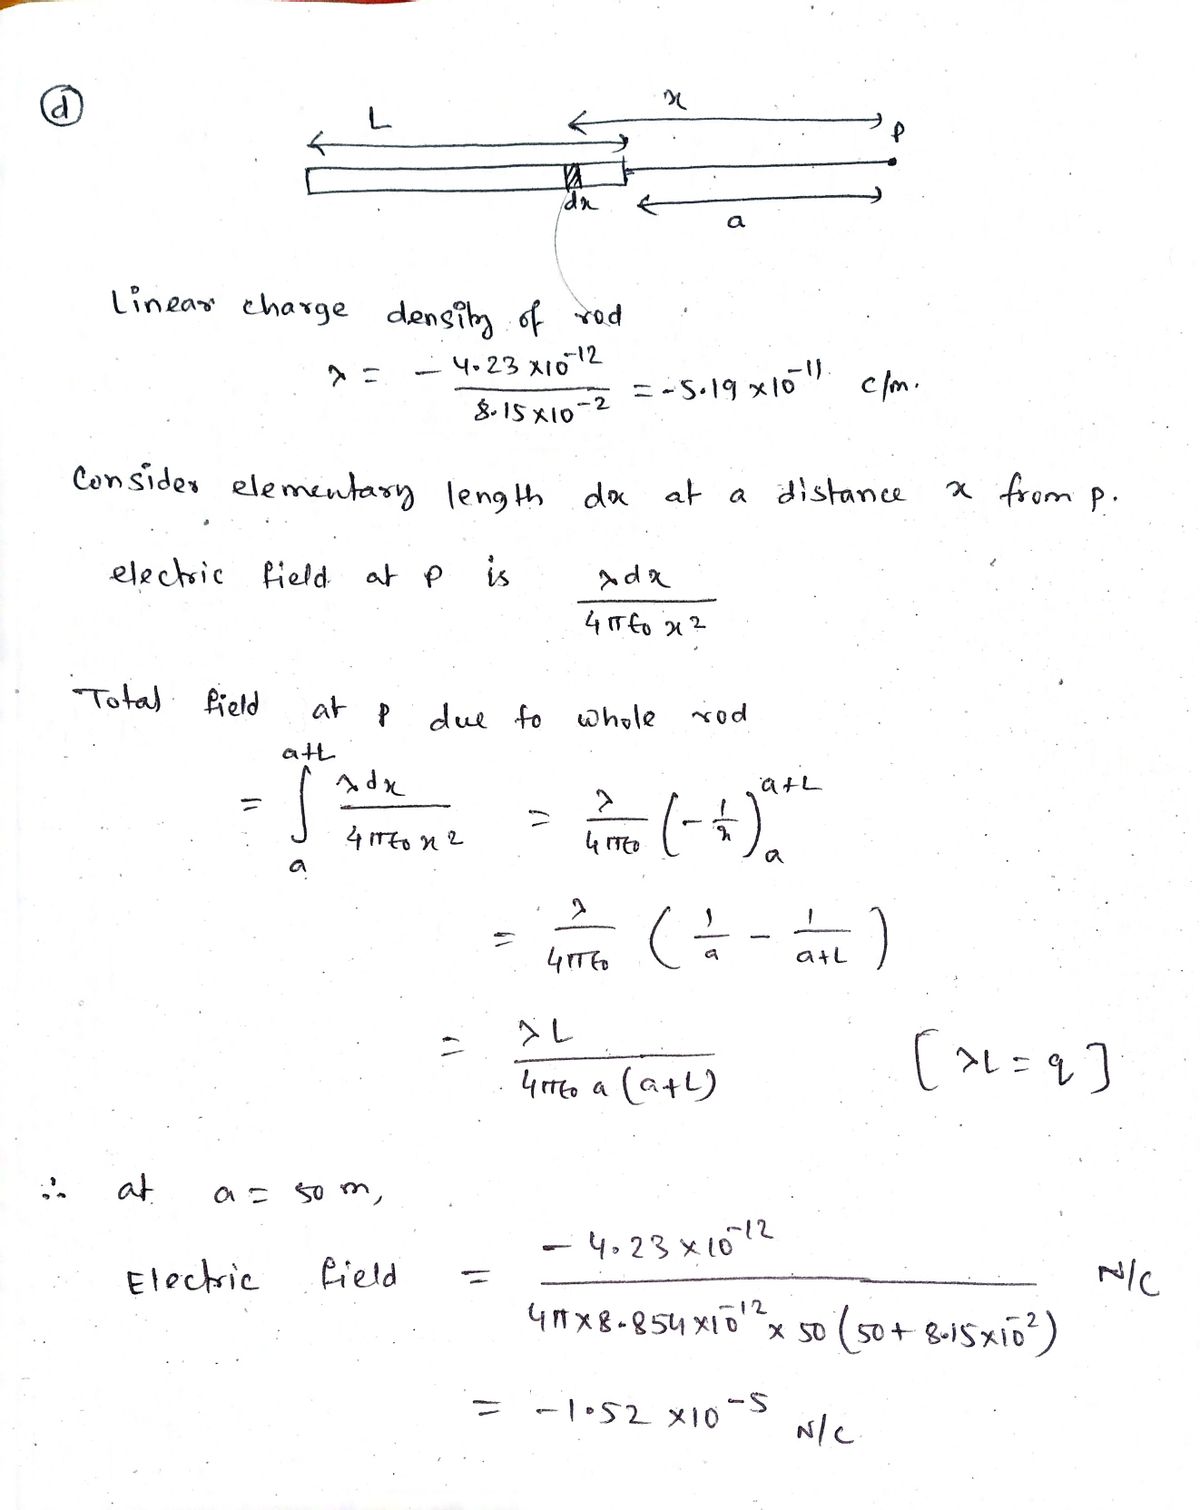 (d)
x
L
P
dx
a
Linear charge density of rod
λ = - 4.23 ×10^-12 / 8.15 ×10^-2 = -5.19 ×10^-11 C/m.
Consider elementary length dx at a distance x from P.
electric field at P is λdx / 4πε0 x^2
Total field at P due to whole rod
= ∫_a^{a+L} λdx / 4πε0 x^2 = λ/4πε0 (-1/x)_a^{a+L}
= λ/4πε0 (1/a - 1/a+L)
= λL / 4πε0 a (a+L) [λL = q]
∴ at a = 50 m,
Electric field = - 4.23 ×10^-12 / 4π×8.854×10^-12 × 50 (50 + 8.15×10^-2) N/C
= -1.52 ×10^-5 N/C